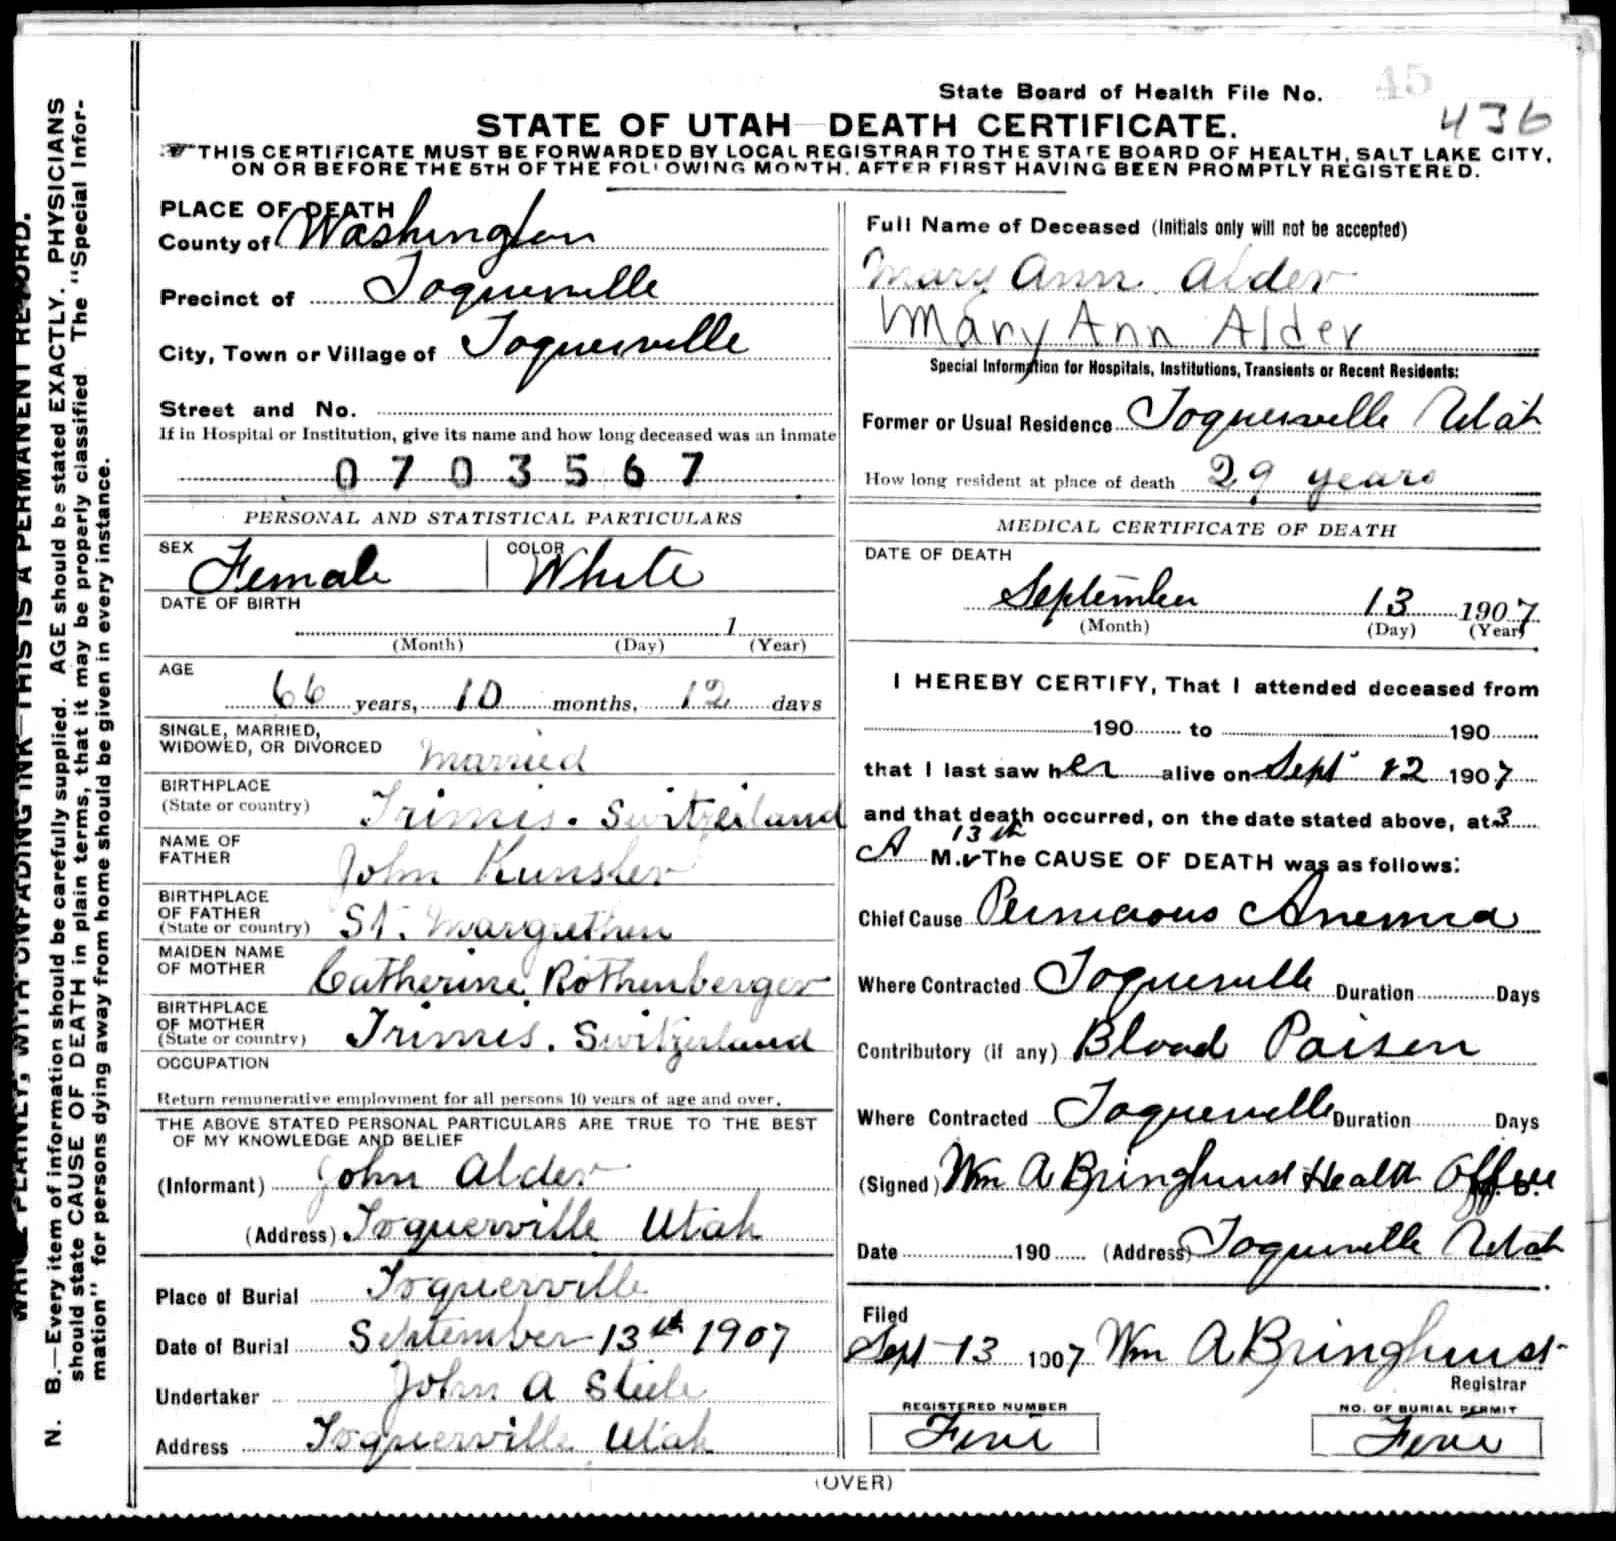 State Board of Health File No. 45
436
STATE OF UTAH DEATH CERTIFICATE.
THIS CERTIFICATE MUST BE FORWARDED BY LOCAL REGISTRAR TO THE STATE BOARD OF HEALTH, SALT LAKE CITY,
ON OR BEFORE THE 5TH OF THE FOLLOWING MONTH, AFTER FIRST HAVING BEEN PROMPTLY REGISTERED.
WRITE PLAINLY, WITH UNFADING INK—THIS IS A PERMANENT RECORD.
N. B.—Every item of information should be carefully supplied. AGE should be stated EXACTLY. PHYSICIANS
should state CAUSE OF DEATH in plain terms, that it may be properly classified. The "Special Infor-
mation" for persons dying away from home should be given in every instance.
PLACE OF DEATH
County of Washington
Precinct of Toquerville
City, Town or Village of Toquerville
Street and No.
If in Hospital or Institution, give its name and how long deceased was an inmate
0703567
PERSONAL AND STATISTICAL PARTICULARS
SEX Female COLOR White
DATE OF BIRTH
1
(Month) (Day) (Year)
AGE
66 years, 10 months, 12 days
SINGLE, MARRIED,
WIDOWED, OR DIVORCED Married
BIRTHPLACE
(State or country) Trimis. Switzerland
NAME OF
FATHER John Kunsler
BIRTHPLACE
OF FATHER
(State or country) St. Margrethen
MAIDEN NAME
OF MOTHER Catherine Rothenberger
BIRTHPLACE
OF MOTHER
(State or country) Trimis. Switzerland
OCCUPATION
Return remunerative employment for all persons 10 years of age and over.
THE ABOVE STATED PERSONAL PARTICULARS ARE TRUE TO THE BEST
OF MY KNOWLEDGE AND BELIEF
(Informant) John Alder
(Address) Toquerville Utah
Place of Burial Toquerville
Date of Burial September 13th 1907
Undertaker John A Steele
Address Toquerville Utah
Full Name of Deceased (Initials only will not be accepted)
Mary Ann Alder
Mary Ann Alder
Special Information for Hospitals, Institutions, Transients or Recent Residents:
Former or Usual Residence Toquerville Utah
How long resident at place of death 29 years
MEDICAL CERTIFICATE OF DEATH
DATE OF DEATH
September 13 1907
(Month) (Day) (Year)
I HEREBY CERTIFY, That I attended deceased from
190 to 190
that I last saw her alive on Sept 12 1907
and that death occurred, on the date stated above, at 3
13th
A M. The CAUSE OF DEATH was as follows:
Chief Cause Pernicious Anemia
Where Contracted Toquerville Duration Days
Contributory (if any) Blood Poisen
Where Contracted Toquerville Duration Days
(Signed) Wm A Bringhurst Health Officer
Date 190 (Address) Toquerville Utah
Filed
Sept 13 1907 Wm A Bringhurst
Registrar
REGISTERED NUMBER
Five
NO. OF BURIAL PERMIT
Five
(OVER)